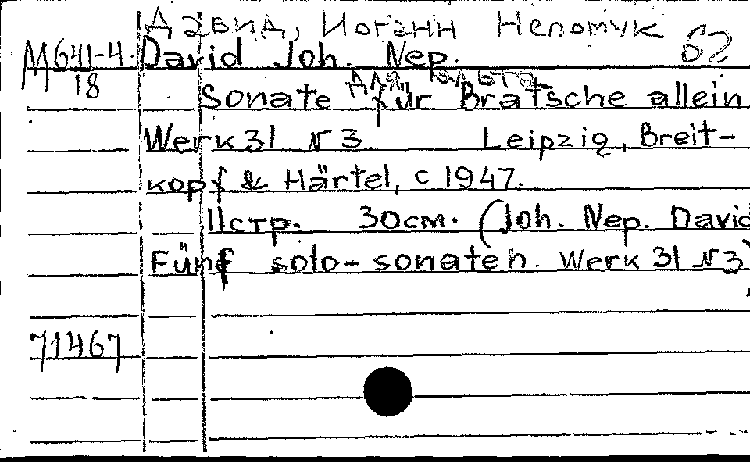 Давид, Иоганн Непомук 62
М641-4. David Joh. Nep.
18 для альта
Sonate für Bratsche allein
Werk 31 №3 Leipzig, Breit-
kopf & Härtel, c 1947.
11стр. 30см. (Joh. Nep. David
Fünf solo-sonaten. Werk 31 №3)
71467